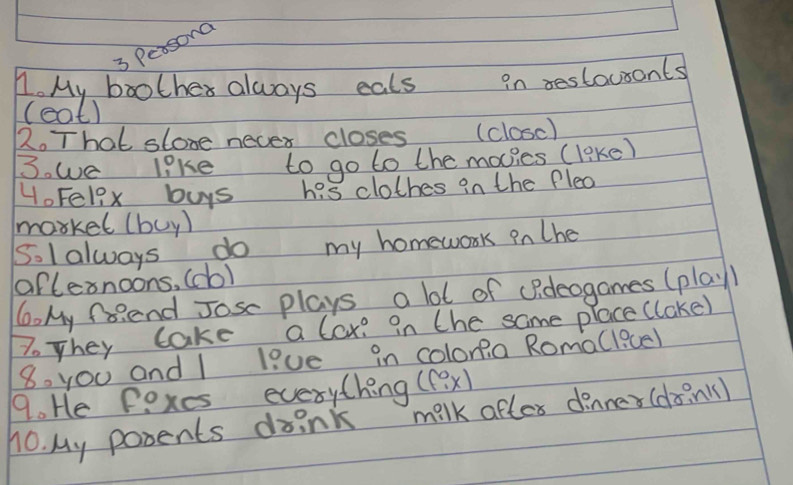 3 Persona
1. My brother always eats in restaurants
(eat)
2. That store never closes (close)
3. we like to go to the movies (like)
4. Felix buys his clothes in the flea
market (buy)
5. I always do my homework in the
afternoons. (do)
6. My friend Jose plays a lot of videogames (play)
7. They take a taxi in the same place (take)
8. you and I live in colonia Roma (live)
9. He fixes everything (fix)
10. My parents drink milk after dinner (drink)